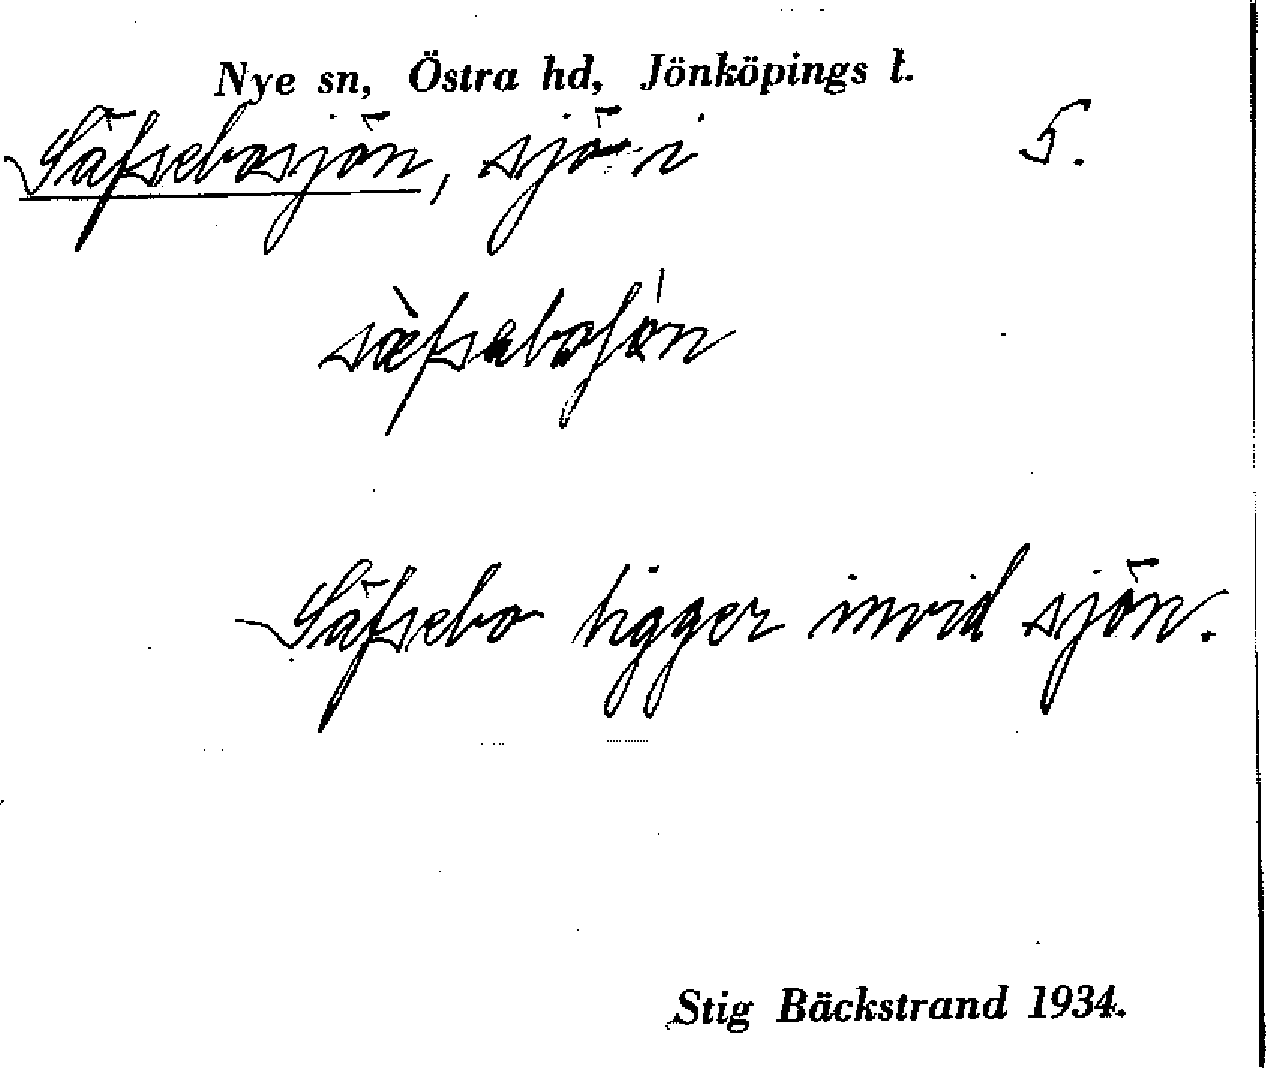 Nye sn, Östra hd, Jönköpings l.
Säfsebosjön, sjö i 5.
Säfsebo ligger invid sjön.
Stig Bäckstrand 1934.